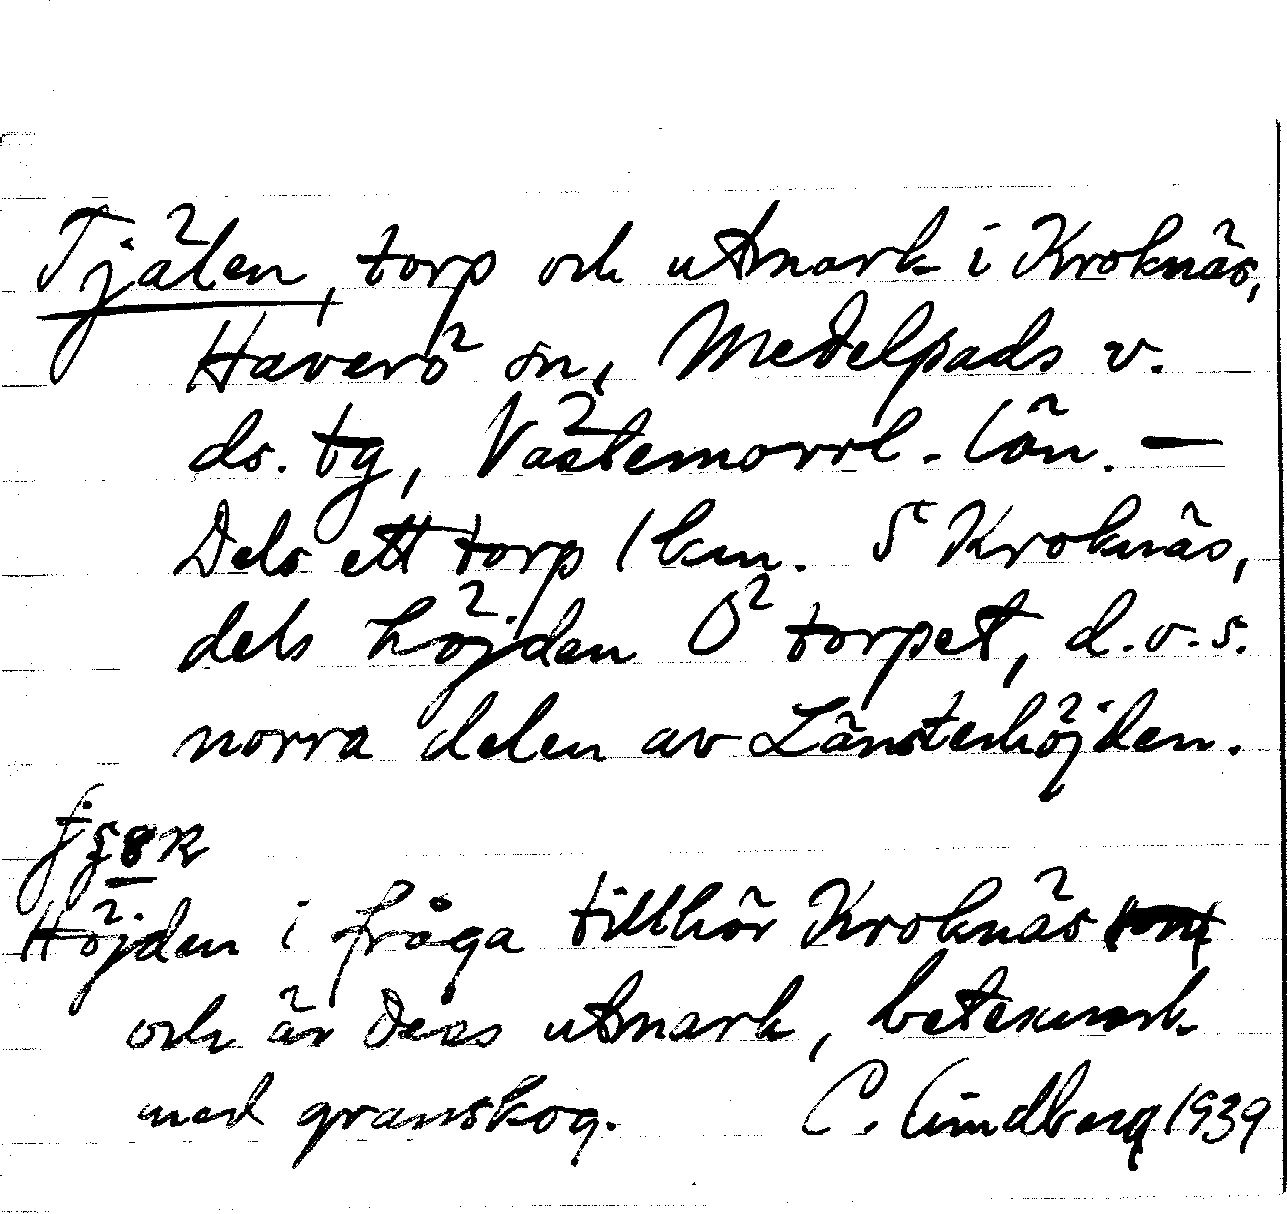 Tjälen, torp och utmark i Kroknäs,
Haverö sn, Medelpads v.
ds. tg, Västernorrl. län. —
Dels ett torp 1 km. S Kroknäs,
dels höjden Ö torpet, d.v.s.
norra delen av Länsterhöjden.
Höjden i fråga tillhör Kroknäs
och är dess utmark, betesmark
med granskog. C. Lindberg 1939